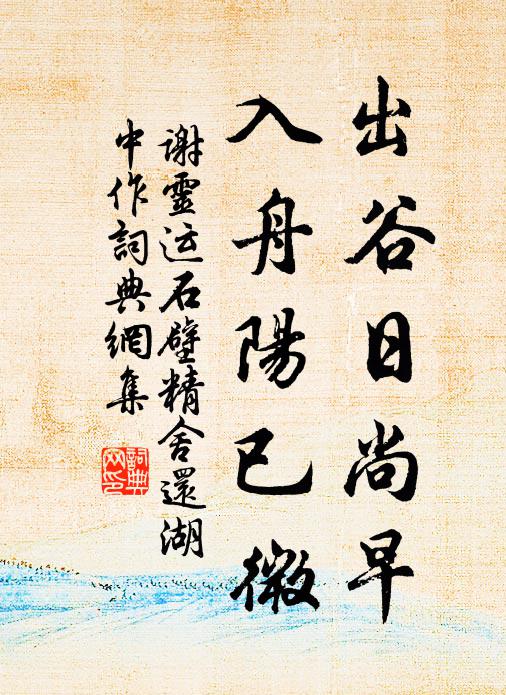 出谷日尚早
入舟陽已微
謝靈运石壁精舍還湖
中作詞典網集
詞典
网印